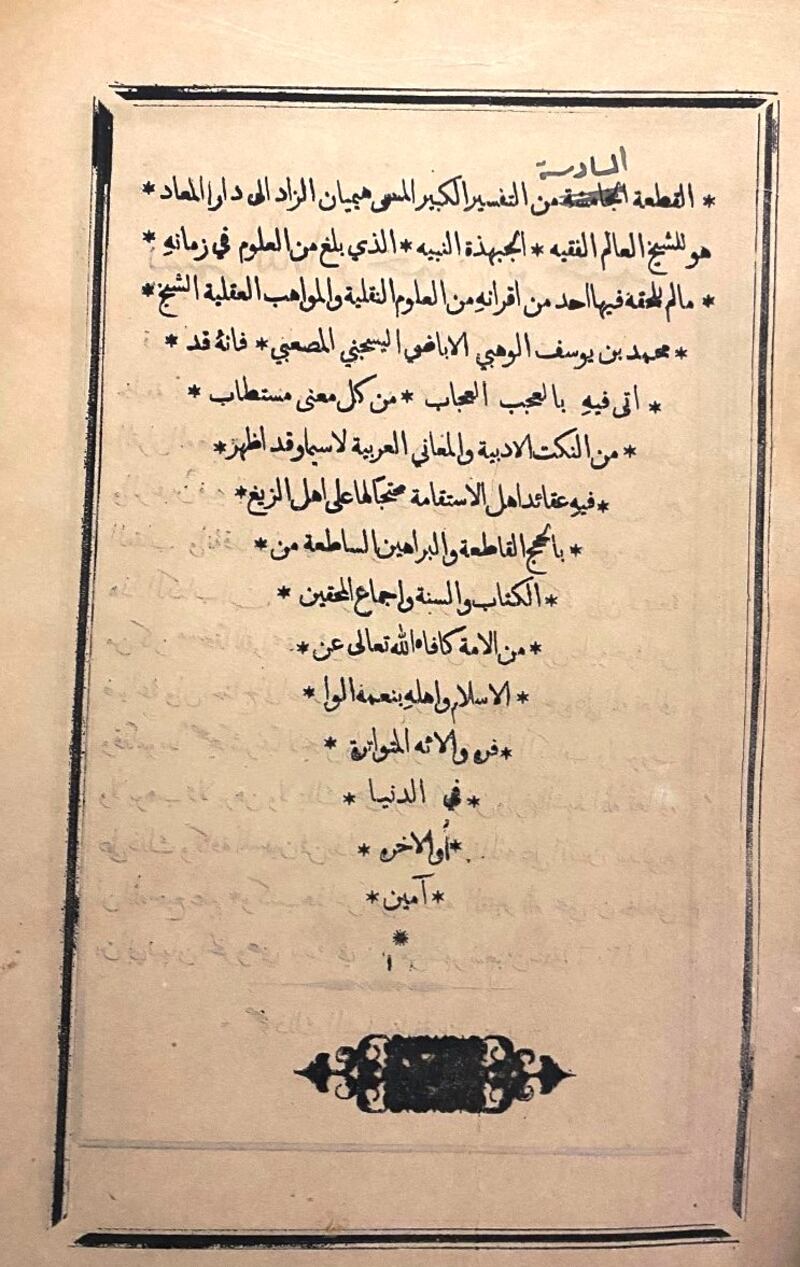 السادسة
* القطعة الخامسة من التفسير الكبير المسمى هيميان الزاد الى دار المعاد *
هو للشيخ العالم الفقيه * الجبهذة النبيه * الذي بلغ من العلوم في زمانهِ *
* مالم يلحقه فيها احد من اقرانهِ من العلوم النقلية والمواهب العقلية الشيخ *
* محمد بن يوسف الوهبي الاباضي اليسجني المصعبي * فانهُ قد *
* اتى فيهِ بالعجب العجاب * من كل معنى مستطاب *
* من النكت الادبية والمعاني العربية لاسيما وقد اظهر *
* فيهِ عقائد اهل الاستقامة محتجا لها على اهل الزيغ *
* بالحجج القاطعة والبراهين الساطعة من *
* الكتاب والسنة واجماع المحقين *
* من الامة كافاه الله تعالى عن *
* الاسلام واهلهِ بنعمه الوا *
* فره والائه المتواترة *
* في الدنيا *
* أوالاخره *
* آمين *
*
١